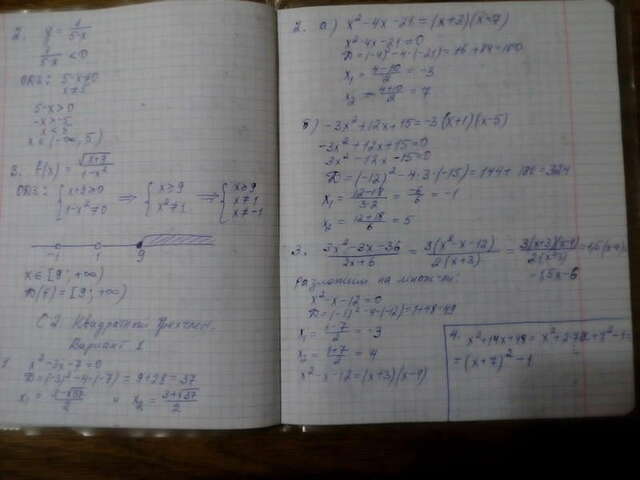 2. y = 1/(5-x)
1/(5-x) < 0
ОДЗ: 5-x≠0
x≠5
5-x>0
-x>-5
x<5
x∈(-∞, 5)
3. f(x) = √(x+9)/(1-x²)
ОДЗ: { x+9≥0 ⇒ { x≥9 ⇒ { x≥9
1-x²≠0 x²≠1 x≠1
x≠-1
-1 1 9
x∈[9; +∞)
D(f) = [9; +∞)
С2. Квадратный трехчлен.
Вариант 1
1 x²-3x-7=0
D=(-3)²-4·(-7) = 9+28=37
x₁ = (3-√37)/2 и x₂ = (3+√37)/2
2. а) x²-4x-21=(x+3)(x-7)
x²-4x-21=0
D=(-4)²-4·(-21)=16+84=100
x₁ = (4-10)/2 = -3
x₂ = (4+10)/2 = 7
б) -3x²+12x+15=-3(x+1)(x-5)
-3x²+12x+15=0
3x²-12x-15=0
D=(-12)²-4·3·(-15)=144+180=324
x₁ = (12-18)/(3·2) = -6/6 = -1
x₂ = (12+18)/6 = 5
3. (3x²-3x-36)/(2x+6) = 3(x²-x-12)/2(x+3) = 3(x+3)(x-4)/2(x+3) =
-1,5x-6
Разложим на множ-ли:
x²-x-12=0
D=(-1)²-4·(-12)=1+48=49
x₁ = (1-7)/2 = -3
x₂ = (1+7)/2 = 4
x²-x-12=(x+3)(x-4)
4. x²+14x+48= x²+2·7x+7²-1=
=(x+7)²-1